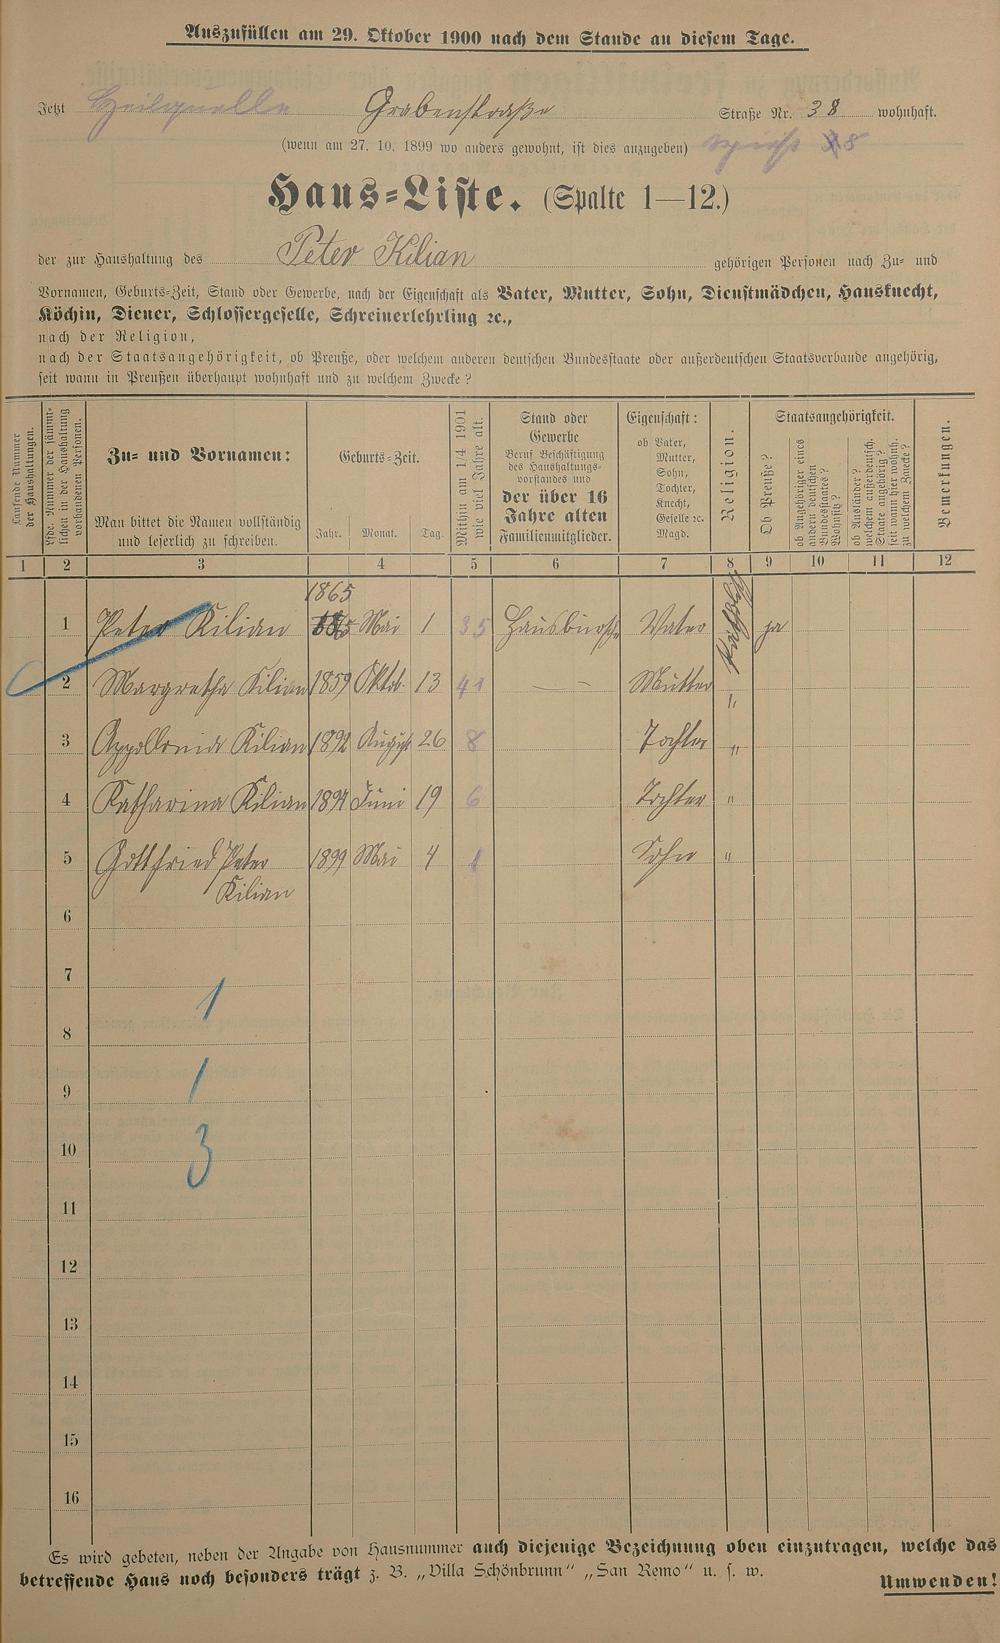 Auszufüllen am 29. Oktober 1900 nach dem Stande an diesem Tage.
Jetzt Heilquelle Grabenstraße Straße Nr. 38 wohnhaft.
(wenn am 27. 10. 1899 wo anders gewohnt, ist dies anzugeben) 8
Haus-Liste. (Spalte 1—12.)
der zur Haushaltung des Peter Kilian gehörigen Personen nach Zu- und
Vornamen, Geburts-Zeit, Stand oder Gewerbe, nach der Eigenschaft als Vater, Mutter, Sohn, Dienstmädchen, Hausknecht,
Köchin, Diener, Schlossergeselle, Schreinerlehrling ꝛc.,
nach der Religion,
nach der Staatsangehörigkeit, ob Preuße, oder welchem anderen deutschen Bundesstaate oder außerdeutschen Staatsverbande angehörig,
seit wann in Preußen überhaupt wohnhaft und zu welchem Zwecke?
Laufende Nummer
der Haushaltungen.
Lfde. Nummer der sämmt-
lichen in der Haushaltung
vorhandenen Personen.
Zu- und Vornamen:
Man bittet die Namen vollständig
und leserlich zu schreiben.
Geburts-Zeit.
Jahr. Monat. Tag.
Mithin am 1/4 1901
wie viel Jahre alt.
Stand oder
Gewerbe
Beruf Beschäftigung
des Haushaltungs-
vorstandes und
der über 16
Jahre alten
Familienmitglieder.
Eigenschaft:
ob Vater,
Mutter,
Sohn,
Tochter,
Knecht,
Geselle ꝛc.
Magd.
Religion.
Staatsangehörigkeit.
Ob Preuße?
ob Angehöriger eines
andern deutschen
Bundesstaates?
Wohnsitz?
ob Ausländer?
welchem außerdeutsch.
Staate angehörig?
seit wann hier wohnh.
zu welchem Zwecke?
Bemerkungen.
1 2 3 4 5 6 7 8 9 10 11 12
1865
1 Peter Kilian Mai 1 35 Hausbursche Vater kathol. ja
2 Margretha Kilian 1859 Oktob. 13 41 — — Mutter "
3 Appollonia Kilian 1892 August 26 8 Tochter "
4 Katharina Kilian 1894 Juni 19 6 Tochter "
5 Gottfried Peter 1899 Mai 4 1 Sohn "
Kilian
6
7
1
8
9 1
10 3
11
12
13
14
15
16
Es wird gebeten, neben der Angabe von Hausnummer auch diejenige Bezeichnung oben einzutragen, welche das
betreffende Haus noch besonders trägt z. B. „Villa Schönbrunn“ „San Remo“ u. s. w.
Umwenden!